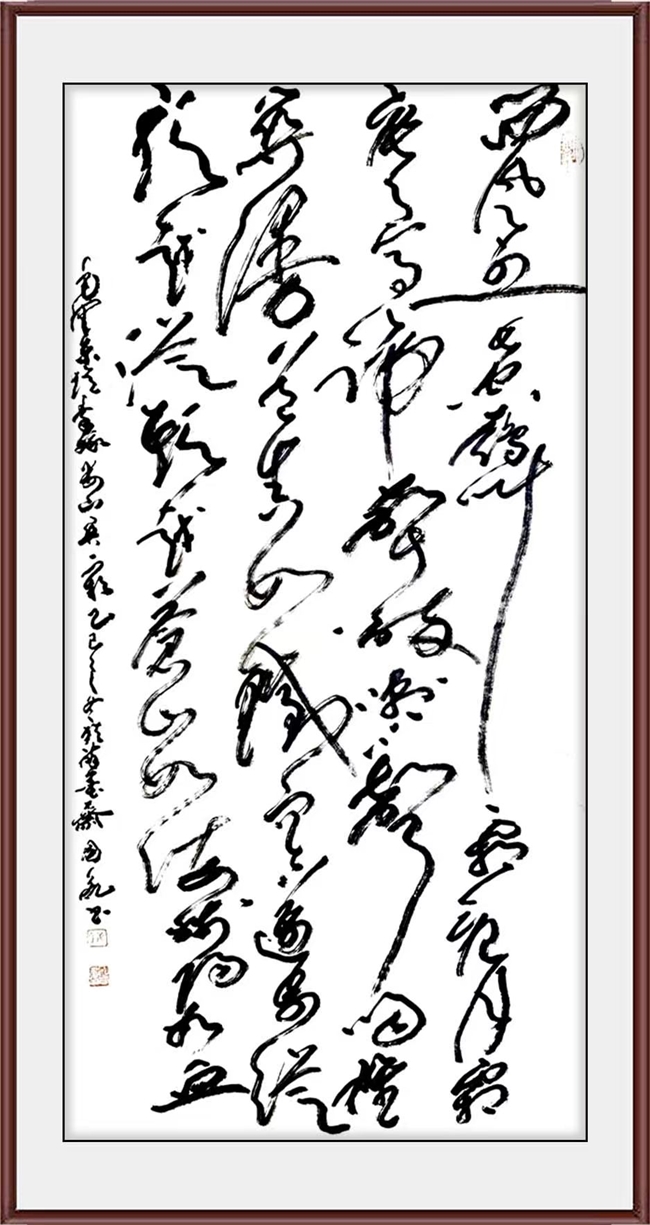 西风烈长空雁叫霜晨月霜
晨月马蹄声碎喇叭声咽雄
关漫道真如铁而今迈步从
头越从头越苍山如海残阳如血
毛泽东忆秦娥娄山关乙巳之蔡国书